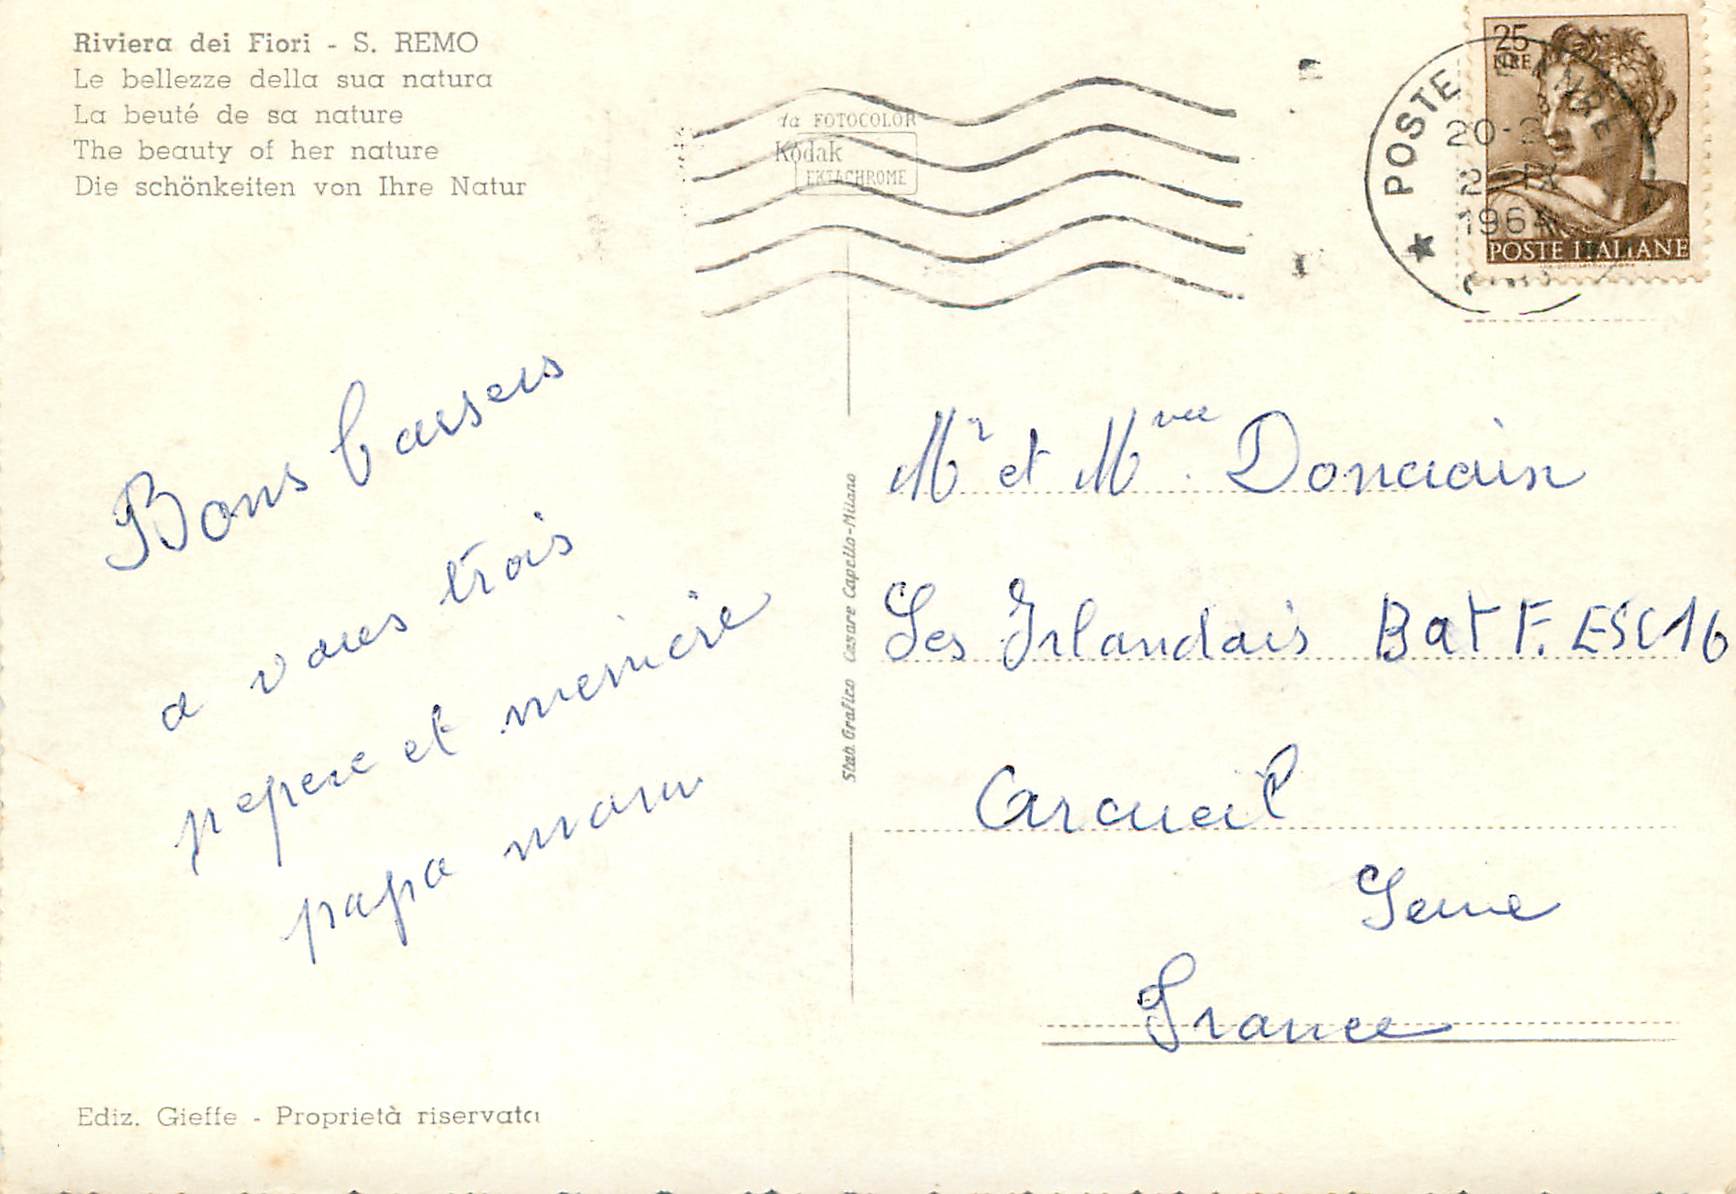 Riviera dei Fiori - S. REMO
Le bellezze della sua natura
La beuté de sa nature
The beauty of her nature
Die schönkeiten von Ihre Natur
da FOTOCOLOR
Kodak
EKTACHROME
25
LIRE
POSTE ITALIANE
POSTE
20-2
IX
1964
Bons baisers
a vous trois
pepere et memere
papa mam
Mr et Mme
Les Irlandais Bat F. ESC 16
Arcueil
Seine
France
Stab. Grafico Cesare Capello-Milano
Ediz. Gieffe - Proprietà riservata